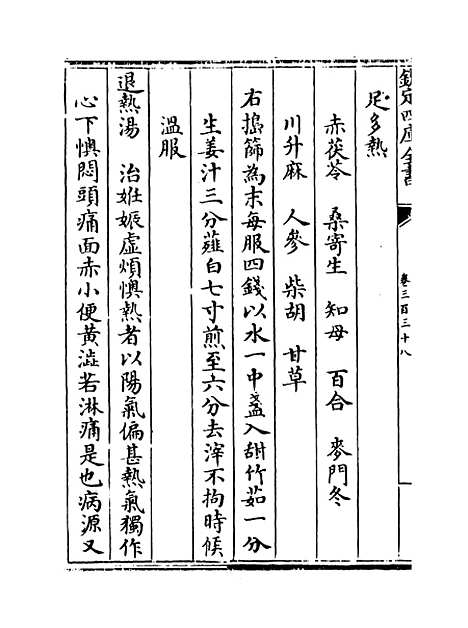 欽定四庫全書
卷三百三十八
足多熱
赤茯苓 桑寄生 知母 百合 麥門冬
川升麻 人參 柴胡 甘草
右搗篩為末每服四錢以水一中盞入甜竹茹一分
生姜汁三分薤白七寸煎至六分去滓不拘時候
溫服
退熱湯 治姙娠虛煩懊熱者以陽氣偏甚熱氣獨作
心下懊悶頭痛面赤小便黃澁若淋痛是也病源又